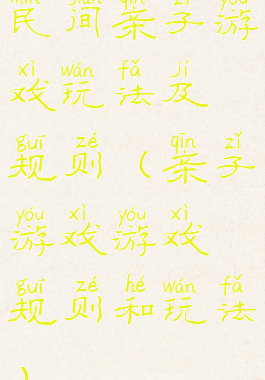 mín jiān qīn zǐ yóu
民间亲子游
xì wán fǎ jí
戏玩法及
guī zé qīn zǐ
规则（亲子
yóu xì yóu xì
游戏游戏
guī zé hé wán fǎ
规则和玩法
）